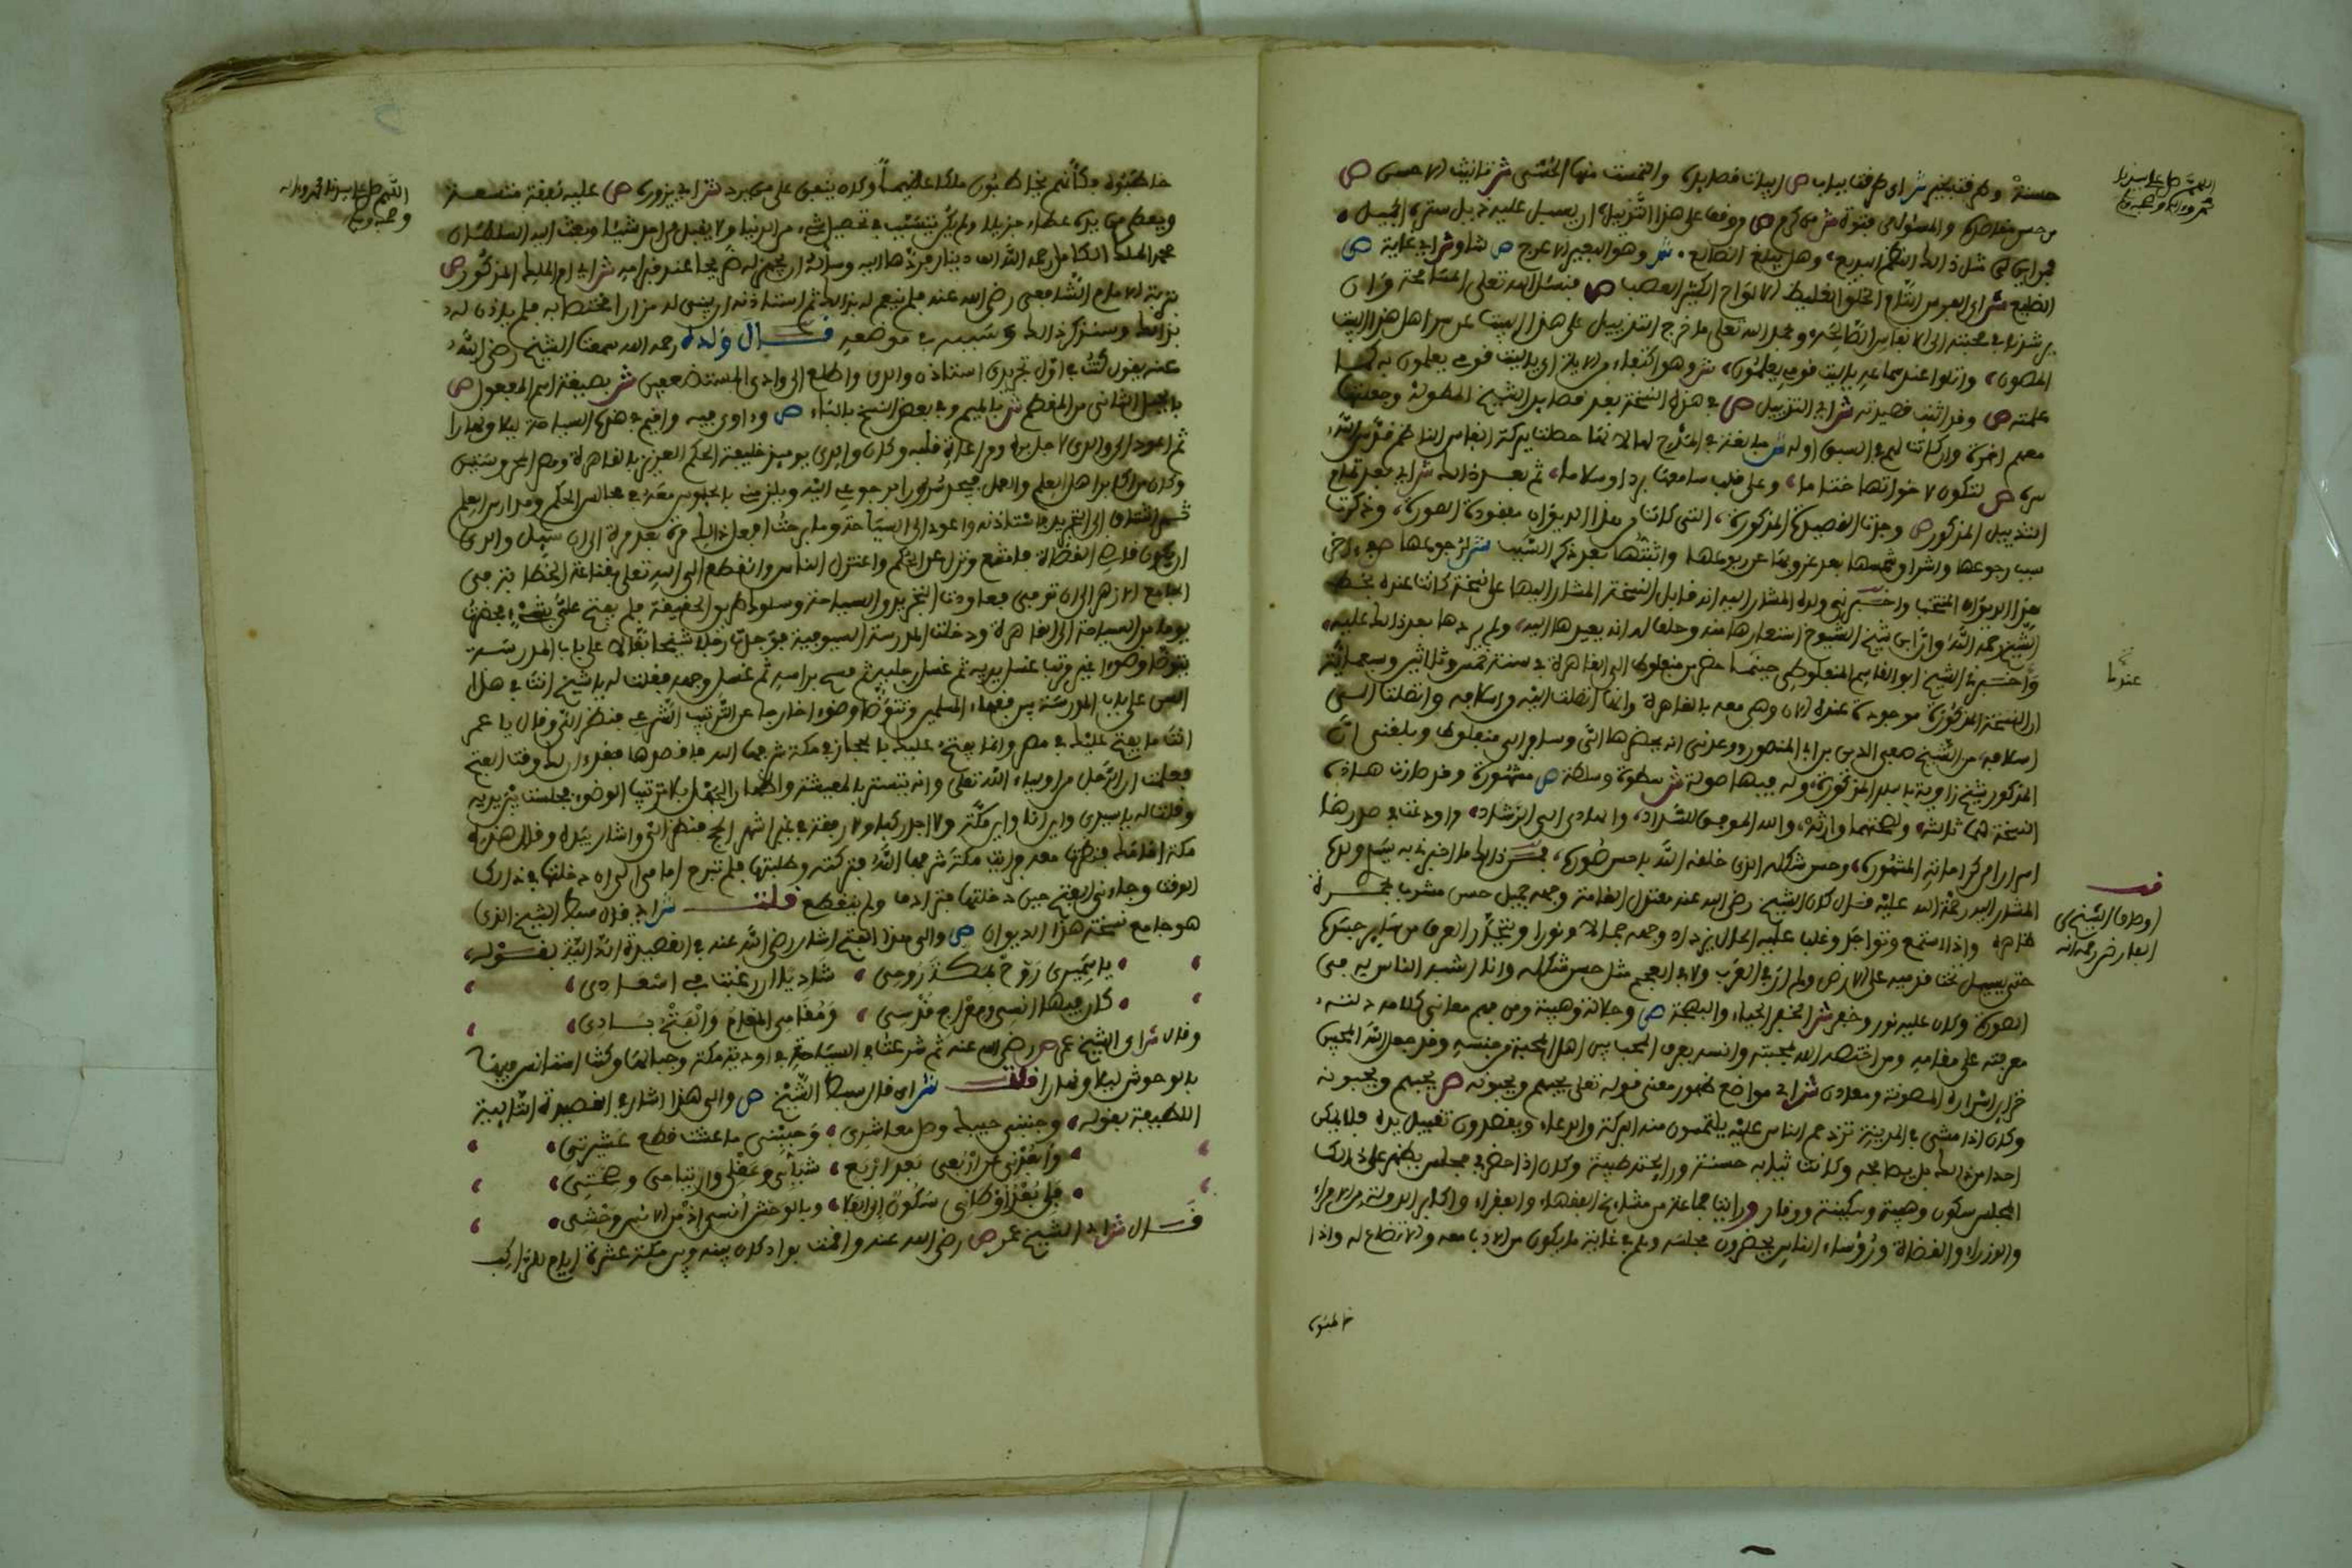 اللهم صل على سيدنا
محمد وءاله وصحبه وسلم
حسنة وطرقت بخير ش اي طرقت بباب ص ابيات قصايده والتمست منها الحسنى ش تانيث الاحسن ص
من حسن مقاصده والمسئول من فتوة ش من كرم ص وقف على هذا التذييل ان يسبل عليه ذيل ستره الجميل
فمن اين لي مثل ذلك النظم البديع وهل يبلغ الضالع ش وهو البعير الاعرج ص شاو ش اي غاية ص
الضليع ش اي الفرس التام الخلق الغليظ الالواح الكثير العصب ص فنسئل الله تعلى المسامحة وان
يرشدنا في محبته الى الانفاس الطاهرة وبحمد الله تعلى ما خرج التذييل على هذا البيت عن سر اهل هذا البيت
المصون واتلوا عند سماعه ياليت قومي يعلمون ش وهو اكتفاء من الاية اي ياليت قومي يعلمون بما
علمته ص وقد اثبت قصيدته ش اي التذييل ص في هذه النسخة بعد قصايد الشيخ المطولة وجعلتها
معهم اخرة وان كانت لهم في السبق اولى ش مبالغة في المدح لها لانها حصلت ببركة انفاس الناظم قدس الله
سره ص لتكون لاخواتها ختاما وعلى قلب سامعها بردا وسلاما ثم بعد ذلك ش اي بعد تمام
التذييل المذكور ص وجدت القصيدة المذكورة التي كانت من هذا الديوان مفقودة الصورة وذكرت
سبب رجوعها واشراق شمسها بعد غروبها عن ربوعها واثبتها بعد ذكر السبب ش لرجوعها
هذا الديوان المنتخب واخبرني ولده المشار اليه انه قابل النسخة المشار اليها على نسخة كانت عنده بخط
الشيخ رحمه الله وان ابن شيخ الشيوخ استعارها منه وحلف له انه يعيدها اليه ولم يردها بعد ذلك عليه
واخبرنا الشيخ ابو القاسم المنفلوطي حينما حضر من منفلوط الى القاهرة في سنة خمس وثلاثين وسبعمائة
عندنا
ان النسخة المذكورة موجودة عنده الان وهي معه بالقاهرة وانها اتصلت اليه من اسلافه واتصلت الى
اسلافه من الشيخ صفي الدين بن ابي المنصور ووعدني انه يحضرها الي وسافر الى منفلوط وبلغني ان
المذكور شيخ زاوية بالبلد المذكورة وله فيها صولة ش سطوة وسلطة ص مشهورة وقد صارت هذه
النسخة لهما ثالثة ولصحتهما وارثة والله الموفق للسداد والهادي الى الرشاد واودعت في صدرها
اسرارا من كراماته المشهورة وحسن شكله الذي خلقه الله باحسن صورة فمن ذلك ما اخبرني به سيدي ولده
المشار اليه رحمة الله عليه قال كان الشيخ رضي الله عنه معتدل القامة وجهه جميل حسن مشرب بحمرة
قف
اوصاف الشيخ بن
الفارض رحمه الله
ظاهرة واذا استمع وتواجد وغلب عليه الحال يزداد وجهه جمالا ونورا ويتحدر العرق من سائر جسده
حتى يسيل تحت قدميه على الارض ولم ار في العرب ولا في العجم مثل حسن شكله وانا اشبه الناس به في
الصورة وكان عليه نور وخفر ش الخفر الحياء والبهجة ص وجلالة وهيبة ومن فهم معاني كلامه دلته
معرفته على مقامه ومن اختصه الله بمحبته وانسه يعرف المحب من اهل المحبة من جنسه وقد جعل الله المحبين
خزاين اسراره المصونة ومعادن ش اي مواضع ظهور معنى قوله تعلى يحبهم ويحبونه ص يحبهم ويحبونه
وكان اذا مشى في المدينة تزدحم الناس عليه يلتمسون منه البركة والدعاء ويقصدون تقبيل يده فلا يمكن
احدا من ذلك بل يصافحه وكانت ثيابه حسنة ورايحته طيبة وكان اذا حضر في مجلس يظهر على ذلك
المجلس سكون وهيبة وسكينة ووقار ورايت جماعة من مشايخ الفقهاء والفقراء واكابر الدولة من الامراء
والوزراء والقضاة ورؤساء الناس يحضرون مجلسه وهم في غاية ما يكون من الادب معه والاتضاع له واذا
خاطبوه
اللهم صل على سيدنا محمد وءاله
وصحبه وسلم
خاطبوه فكأنهم يخاطبون ملكا عظيما وكان ينفق على من يرد ش اي يزوره ص عليه نفقة متسعة
ويعطي من يده عطاء جزيلا ولم يكن يتسبب في تحصيل شيء من الدنيا ولا يقبل من احد شيئا وبعث اليه السلطان
محمد الملك الكامل رحمه الله الف دينار فردها اليه وسأله ان يجهز له ضريحا عند قبر امه ش اي ام الملك المذكور ص
بتربة الامام الشافعي رضي الله عنه فلم ينعم له بذلك ثم استاذنه ان يبني له مزارا مختصا به فلم ياذن له
بذلك وسنذكر ذلك وسببه في موضعه قال ولده رحمه الله سمعت الشيخ رضي الله
عنه يقول كنت في اول تجريدي استاذن والدي واطلع الى وادي المستضعفين ش بصيغة اسم المفعول ص
بالجبل الثاني من المقطم ش بالميم وفي بعض النسخ بالباء ص وءاوي فيه واقيم في هذه السياحة ليلا ونهارا
ثم اعود الى والدي لاجل بره ومراعاة قلبه وكان والدي يوميذ خليفة الحكم العزيز بالقاهرة ومصر المحروستين
وكان من اكابر اهل العلم والعمل فيجد سرورا برجوعي اليه ويلزمني بالجلوس معه في مجالس الحكم ومدارس العلم
ثم اشتاق الى التجريد فاستاذنه واعود الى السياحة وما برحت افعل ذلك مرة بعد مرة الى ان سئل والدي
ان يكون قاضي القضاة فامتنع ونزل عن الحكم واعتزل الناس وانقطع الى الله تعلى بقاعة الخطابة في
الجامع الازهر الى ان توفي فعاودت التجريد والسياحة وسلوك طريق الحقيقة فلم يفتح علي بشيء فحضرت
يوما من السياحة الى القاهرة ودخلت المدرسة السيوفية فوجدت رجلا شيخا بقالا على باب المدرسة
يتوضأ وضوءا غير مرتب غسل يديه ثم غسل رجليه ثم مسح براسه ثم غسل وجهه فقلت له يا شيخ انت في هذا
السن على باب المدرسة بين فقهاء المسلمين وتتوضأ وضوءا خارجا عن الترتيب الشرعي فنظر الي وقال يا عمر
انت ما يفتح عليك في مصر وانما يفتح عليك بالحجاز في مكة شرفها الله فاقصدها فقد ءان لك وقت الفتح
فعلمت ان الرجل من اولياء الله تعلى وانه يتستر بالمعيشة واظهار الجهل بلا ترتيب الوضوء فجلست بين يديه
وقلت له يا سيدي واين انا واين مكة ولا اجد ركبا ولا رفقة في غير اشهر الحج فنظر الي واشار بيده وقال هذه
مكة امامك فنظرت معه فرايت مكة شرفها الله فتركته وطلبتها فلم تبرح امامي الى ان دخلتها في ذلك
الوقت وجاءني الفتح حين دخلتها فترادف ولم ينقطع قلت ش اي قال سبط الشيخ الذي
هو جامع نسخة هذا الديوان ص والى هذا الفتح اشار رضي الله عنه في القصيدة الدالية بقوله
يا سميري روح بمكة روحي شاديا ان رغبت في اسعادي
كان فيها انسي ومعراج قدسي ومقامي المقام والفتح بادي
وقال ش اي الشيخ عمر ص رضي الله عنه ثم شرعت في السياحة في اودية مكة وجبالها وكنت استانس فيها
بالوحوش ليلا ونهارا قلت ش اي قال سبط الشيخ ص والى هذا اشار في القصيدة التائية
اللطيفة بقوله وجنبني حبيك وصل معاشري وحببني ما عشت قطع عشيرتي
وابعدني عن اربعي بعد اربع شبابي وعقلي وارتياحي وصحتي
فلي بعد اوطاني سكون الى الفلا وبالوحش انسي اذ من الانس وحشتي
قال ش اي الشيخ عمر ص رضي الله عنه واقمت بواد كان بينه وبين مكة عشرة ايام للراكب